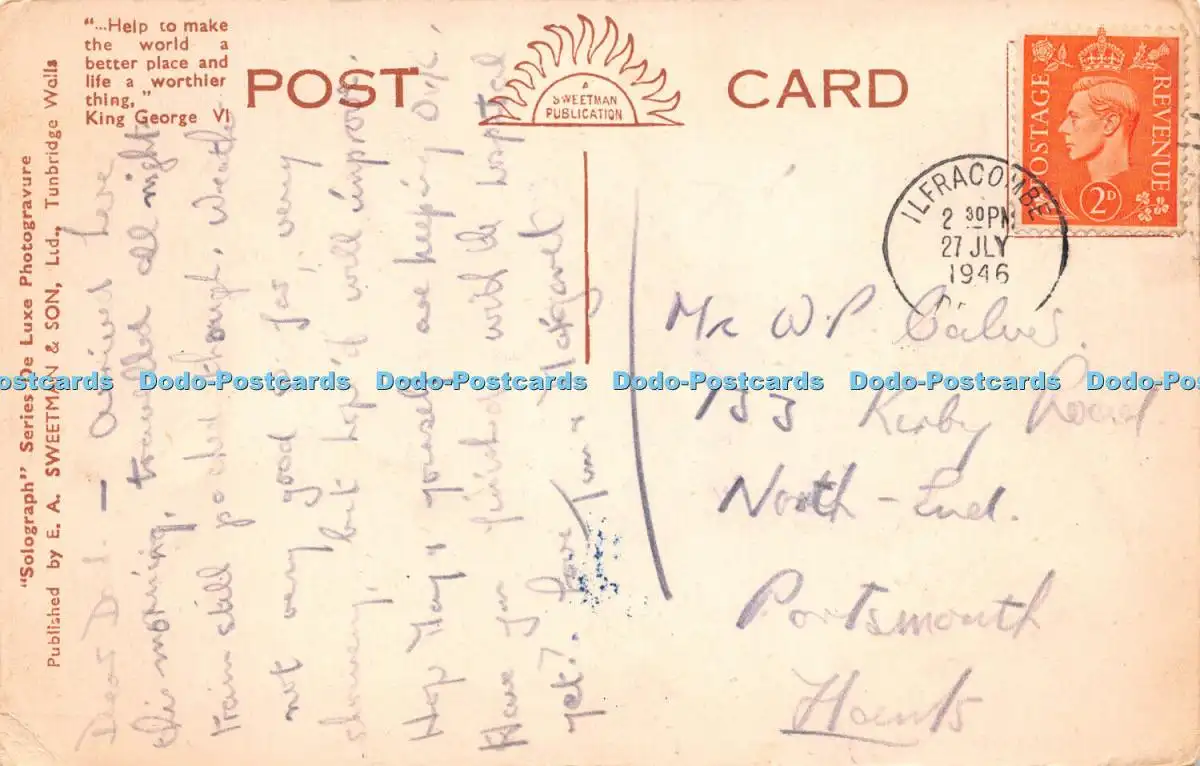 "...Help to make
the world a
better place and
life a worthier
thing,"
King George VI
POST CARD
A
SWEETMAN
PUBLICATION
"Solograph" Series De Luxe Photogravure
Published by E. A. SWEETMAN & SON, Ltd., Tunbridge Wells
POSTAGE REVENUE
2D
ILFRACOMBE
2 30 PM
27 JLY
1946
Dear D – arrived here
this morning, travelled all night.
train still packed though, weather
not very good so far, very
showery, but hope it will improve.
Hop May & yourself are keeping O.K.
Have you finished with the hospital
yet? Love &  Margaret
Mr W.P.
133 Kirby Road
North-End.
Portsmouth
Hants
Dodo-Postcards Dodo-Postcards Dodo-Postcards Dodo-Postcards Dodo-Postcards Dodo-Postcards